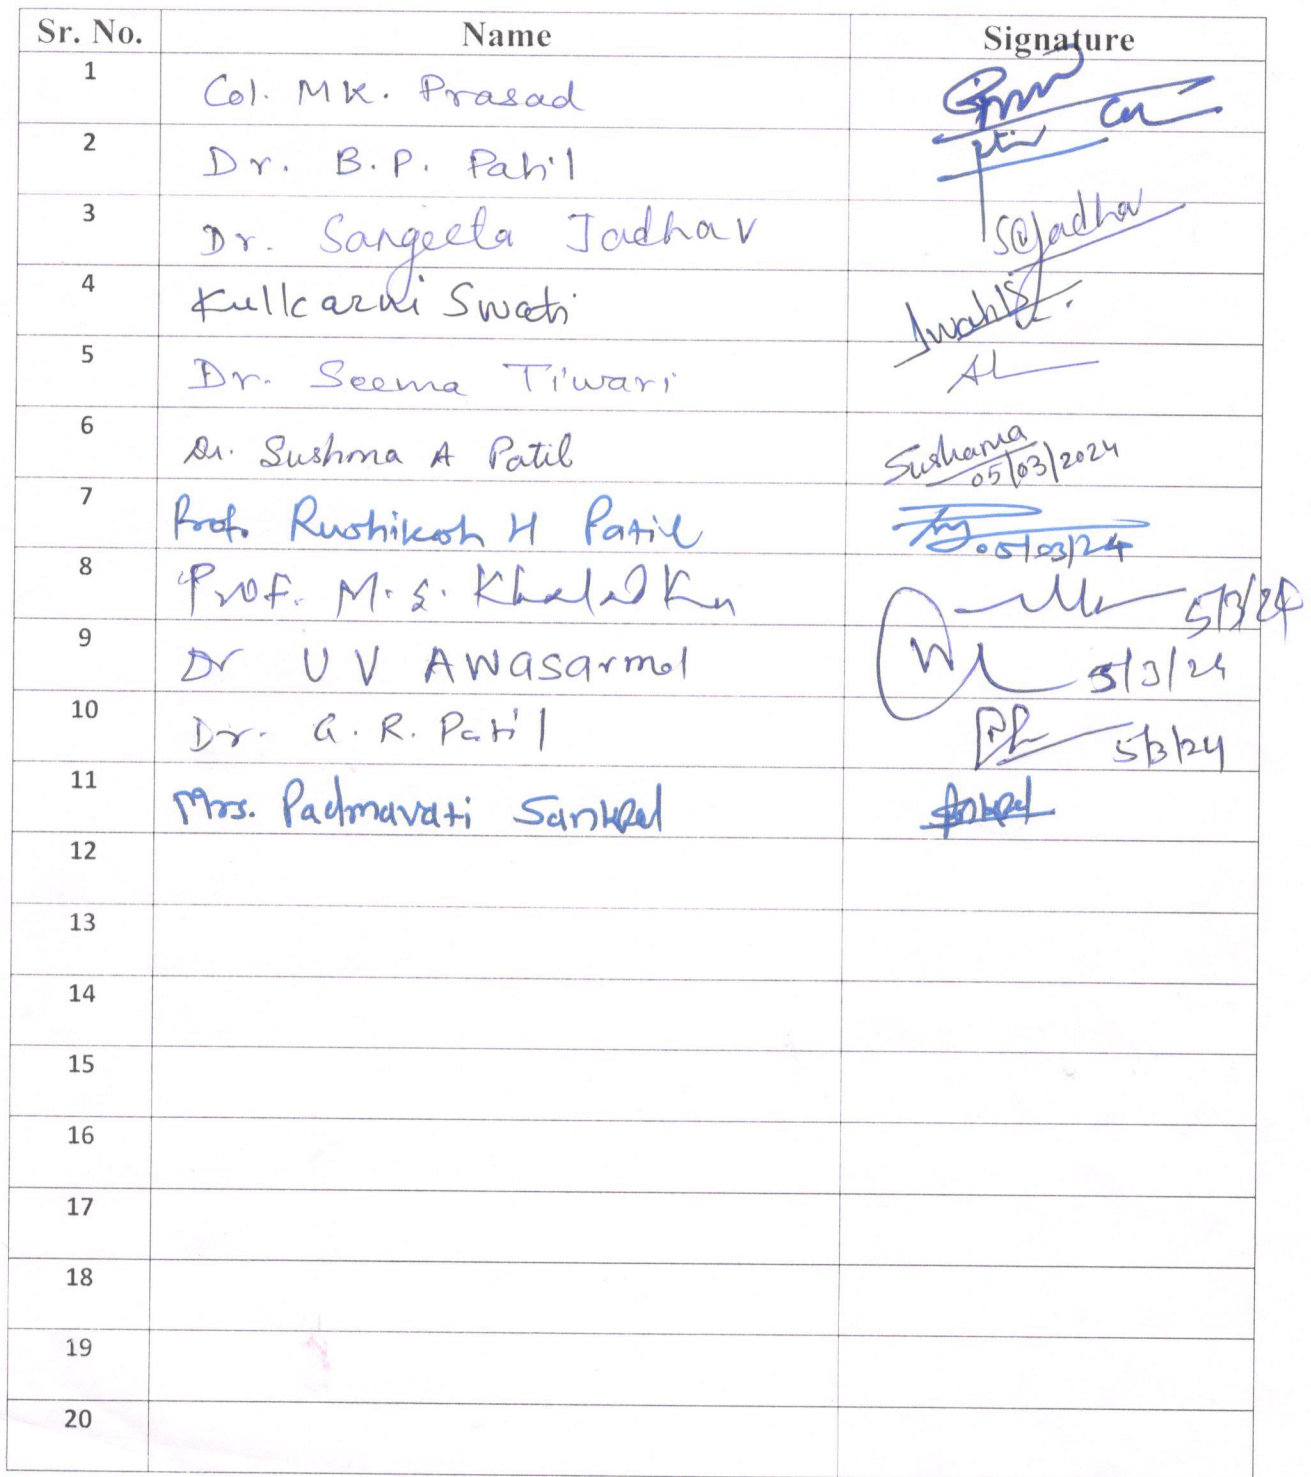 Sr. No. Name Signature
1 Col. MK. Prasad
2 Dr. B.P. Patil
3 Dr. Sangeeta Jadhav SJadhav
4 Kulkarni Swati
5 Dr. Seema Tiwari
6 Dr. Sushma A Patil Sushama
05/03/2024
7 Prof. Rushikesh H Patil 05/03/24
8 Prof. M.S. 5/3/24
9 Dr U V Awasarmol 5/3/24
10 Dr. G.R. Patil 5/3/24
11 Mrs. Padmavati Sankpal Sankpal
12
13
14
15
16
17
18
19
20